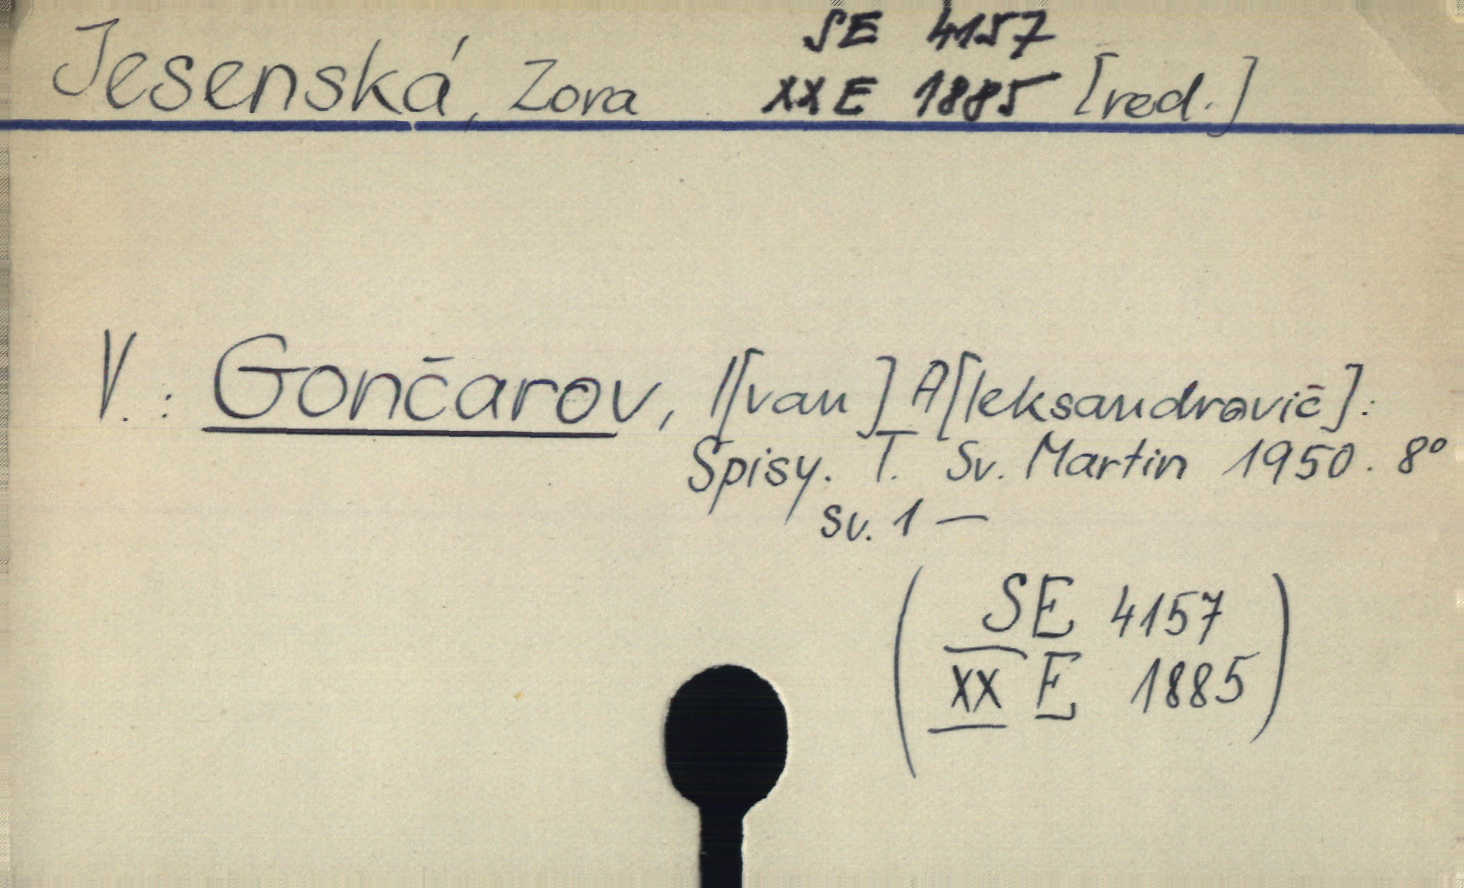 SE 4157
Jesenská, Zora XX E 1885 [red.]
V.: Gončarov, I[van] A[leksandrovič]:
Spisy. T. Sv. Martin 1950. 8°
sv. 1 —
(SE 4157
XX E 1885)